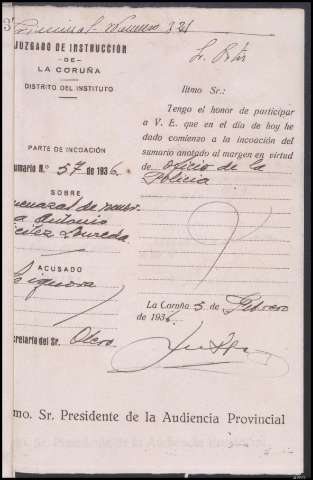 Criminal Número 321
JUZGADO DE INSTRUCCIÓN
DE
LA CORUÑA
DISTRITO DEL INSTITUTO
PARTE DE INCOACIÓN
umario N.º 57 de 1936
SOBRE
menazas de muer-
a Antonio
Loureda
ACUSADO
Se ignora
ecretario del Sr. Otero
Iltmo Sr.:
Tengo el honor de participar
a V. E. que en el día de hoy he
dado comienzo a la incoación del
sumario anotado al margen en virtud
de oficio de la
Policía
La Coruña 5 de Febrero
de 1936
mo. Sr. Presidente de la Audiencia Provincial